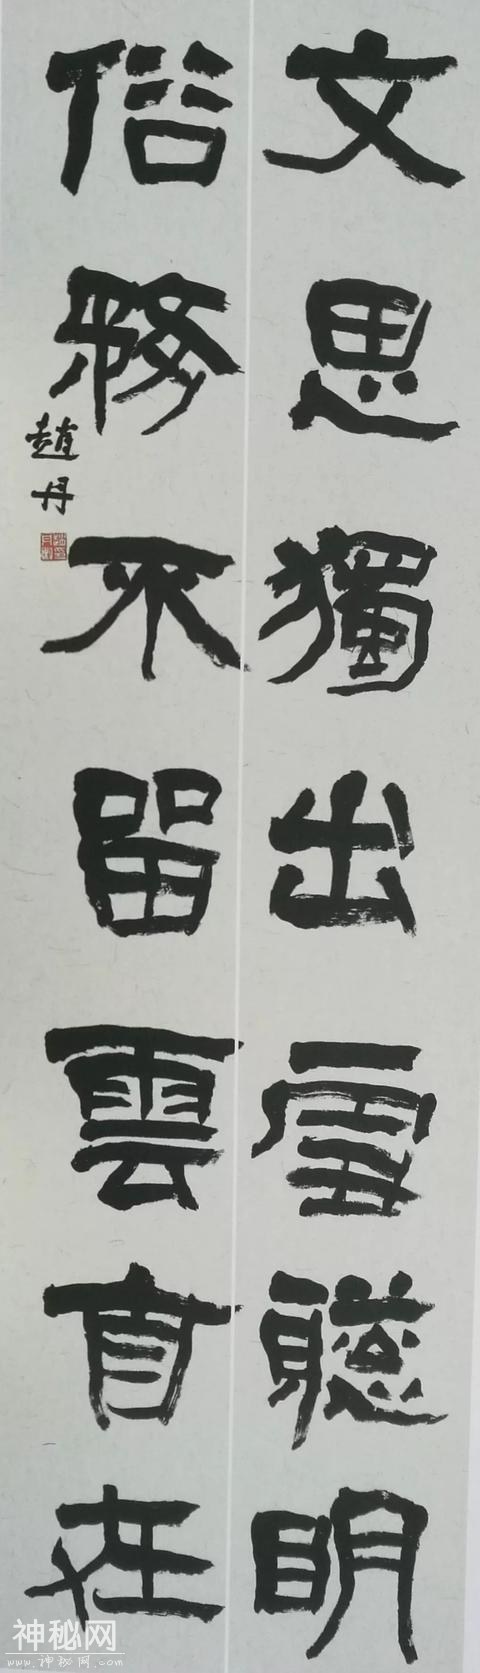 文思獨出雪聰明
俗務不留雲自在
趙丹
神秘网
www.神秘网.com